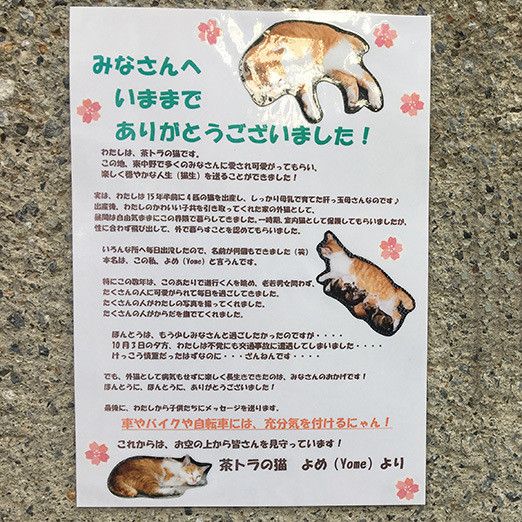 みなさんへ
いままで
ありがとうございました！
わたしは、茶トラの猫です。
この地、東中野で多くのみなさんに愛され可愛がってもらい、
楽しく穏やかな人生（猫生）を送ることができました！
実は、わたしは15年半前に4匹の猫を出産し、しっかり母乳で育てた肝っ玉母さんなのです♪
出産後、わたしのかわいい子供を引き取ってくれた家の外猫として、
昼間は自由気ままにこの界隈で暮らしてきました。一時期、室内猫として保護してもらいましたが、
性に合わず飛び出して、外で暮らすことを認めてもらいました。
いろんな所へ毎日出没したので、名前が何個もできました（笑）
本名は、この私、よめ（Yome）と言うんです。
特にこの数年は、このあたりで道行く人を眺め、老若男女問わず、
たくさんの人に可愛がられて毎日を過ごしてきました。
たくさんの人がわたしの写真を撮ってくれました。
たくさんの人がからだを撫でてくれました。
ほんとうは、もう少しみなさんと過ごしたかったのですが・・・・
10月3日の夕方、わたしは不覚にも交通事故に遭遇してしまいました・・・・
けっこう慎重だったはずなのに・・・ざんねんです・・・・
でも、外猫として病気もせずに楽しく長生きできたのは、みなさんのおかげです！
ほんとうに、ほんとうに、ありがとうございました！
最後に、わたしから子供たちにメッセージを送ります。
車やバイクや自転車には、充分気を付けるにゃん！
これからは、お空の上から皆さんを見守っています！
茶トラの猫 よめ（Yome）より